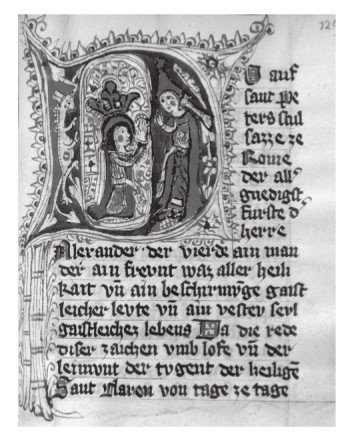 129
DO auf
sant Pe
ters stul
sazze ze
Rome
der all᷒
gnedigst
furste d᷒
herre
Alexander · der vierde ain man
der ain frevnt waz aller heili
kait vn̄ ain beschirmyge gaist
leicher levte vn̄ ain vester sevl
gaistleichez lebens Da die rede
diser zaichen vmb lofe vn̄ der
leimvnt der tvgent der heilige᷒
Sant Claren von tage ze tage